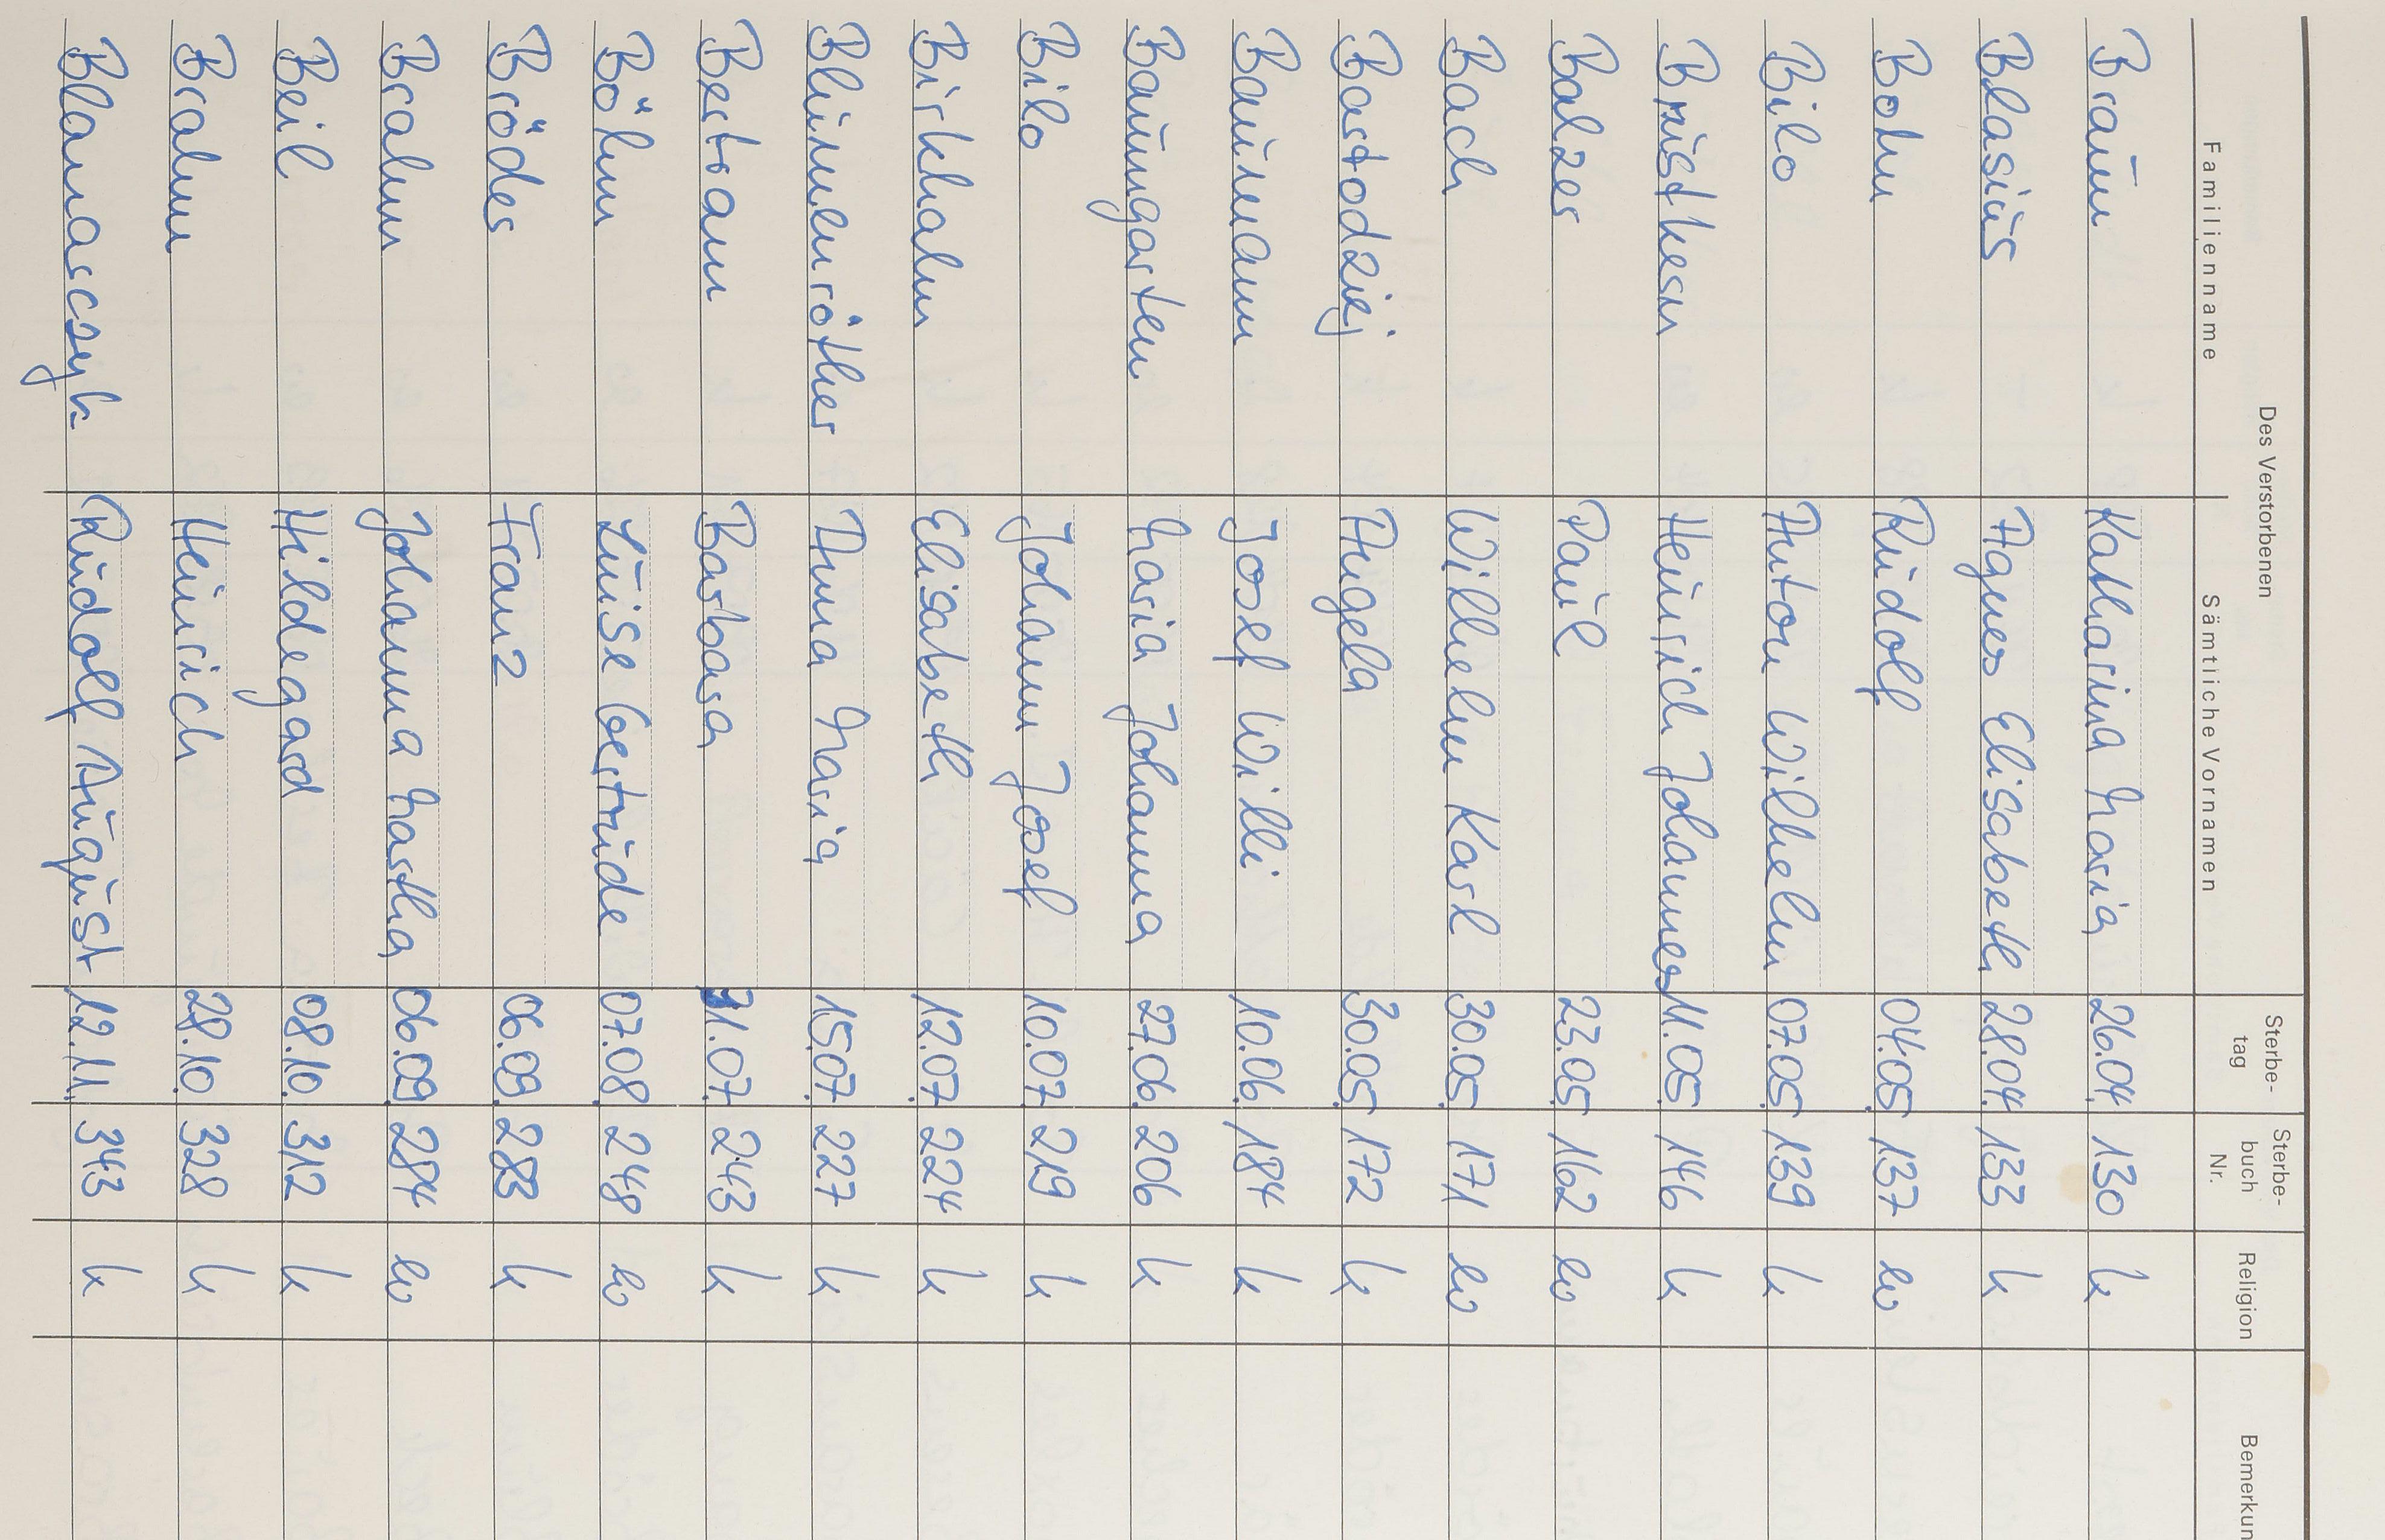 Des Verstorbenen Sterbe- Sterbe- Religion Bemerkun
Familienname Sämtliche Vornamen tag buch Nr.
Braun Katharina Maria 26.04. 130 k
Blasius Agnes Elisabeth 28.04. 133 k
Bohn Rudolf 04.05. 137 ev
Bilo Anton Wilhelm 07.05. 139 k
Brustkern Heinrich Johannes 11.05. 146 k
Balzer Paul 23.05. 162 ev
Bach Wilhelm Karl 30.05. 171 ev
Bartodziej Angela 30.05. 172 k
Baumann Josef Willi 10.06. 184 k
Baumgarten Maria Johanna 27.06. 206 k
Bilo Johann Josef 10.07. 219 k
Birkhahn Elisabeth 12.07. 224 k
Blumenröther Anna Maria 15.07. 227 k
Bertram Barbara 31.07. 243 k
Böhm Luise Gertrude 07.08. 248 ev
Bröder Franz 06.09. 283 k
Brahm Johanna Martha 06.09. 284 ev
Beil Hildegard 08.10. 312 k
Brahm Heinrich 28.10. 328 k
Blanasczyk Rudolf August 12.11. 343 k